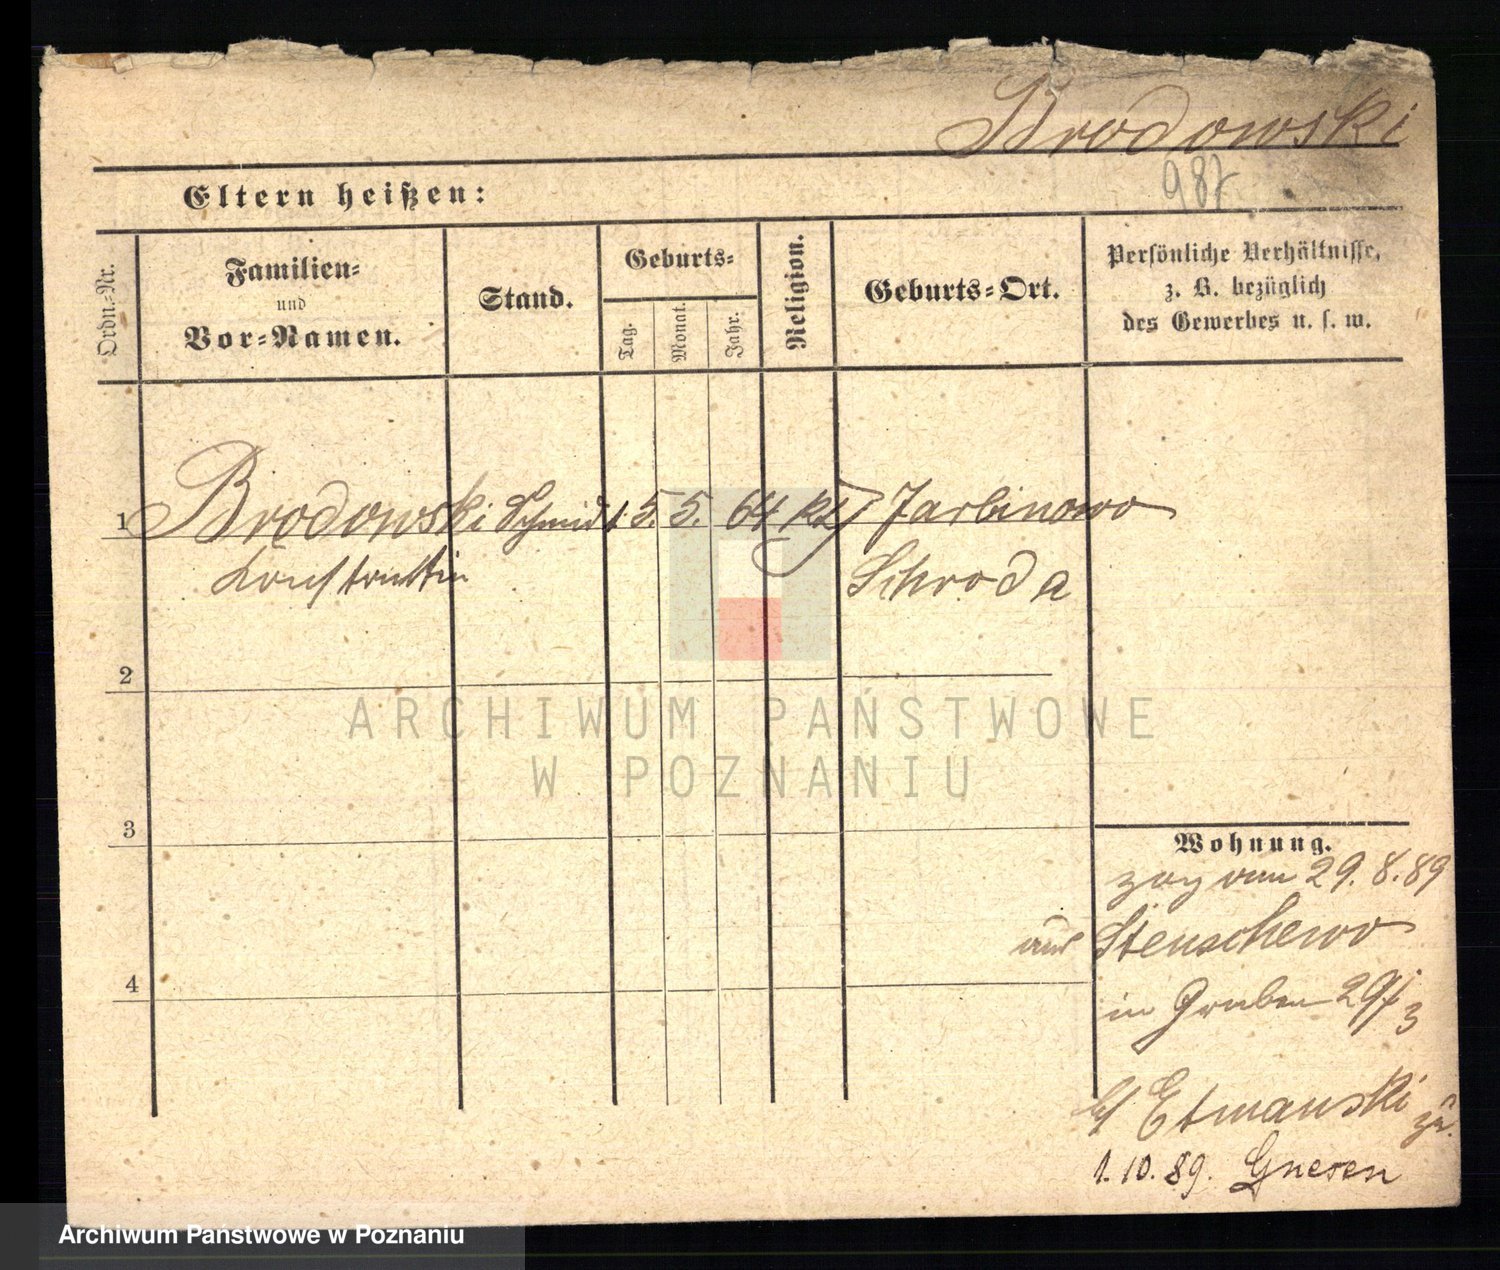 Brodowski
987
Eltern heißen:
Ordn.-Nr.
Familien-
und
Vor-Namen.
Stand.
Geburts-
Tag.
Monat.
Jahr.
Religion.
Geburts-Ort.
Persönliche Verhältnisse,
z. B. bezüglich
des Gewerbes u. s. w.
1 Brodowski Schmidt 5. 5. 64 Jarbinowo
Konstantin Schroda
2
3
4
Wohnung.
zog vom 29. 8. 89
aus Stenschewo
in Graben 29/3
bei Etmanski
1. 10. 89. Gnesen
ARCHIWUM PAŃSTWOWE
W POZNANIU
Archiwum Państwowe w Poznaniu